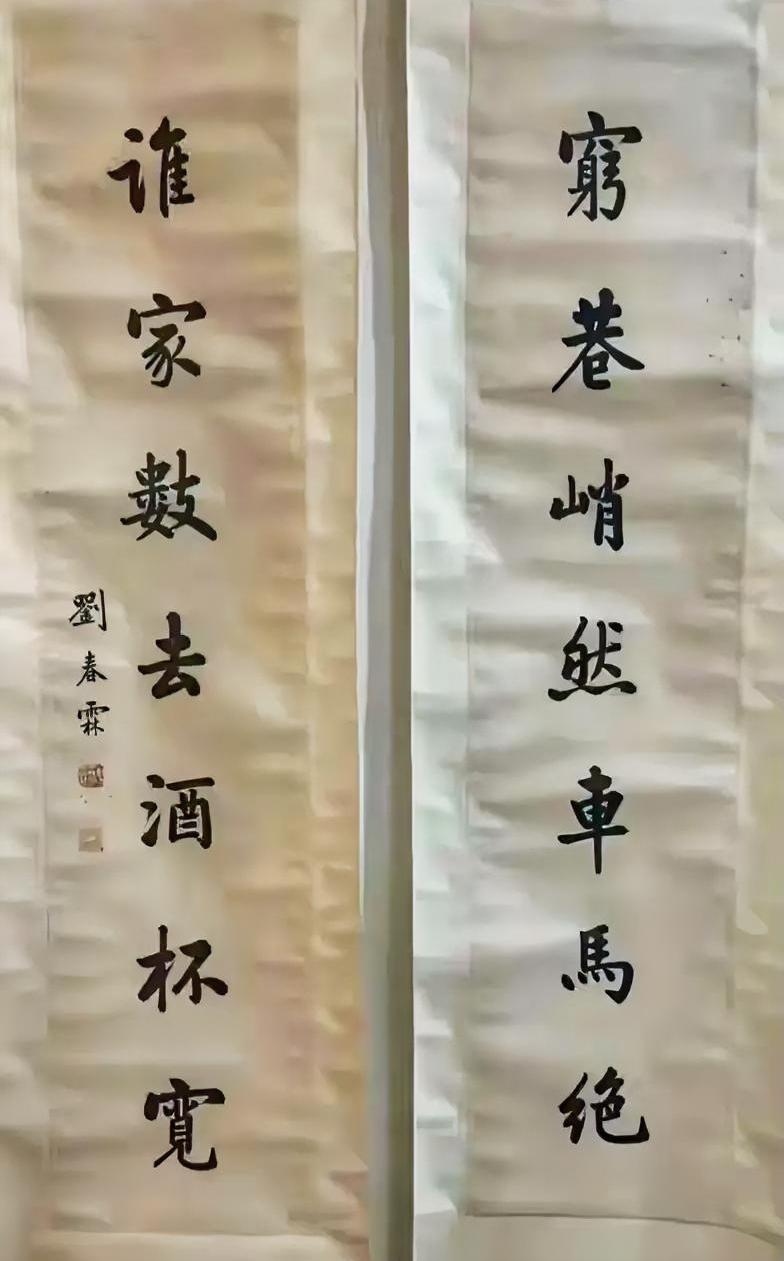 窮巷峭然車馬絶
誰家數去酒杯寬
劉春霖